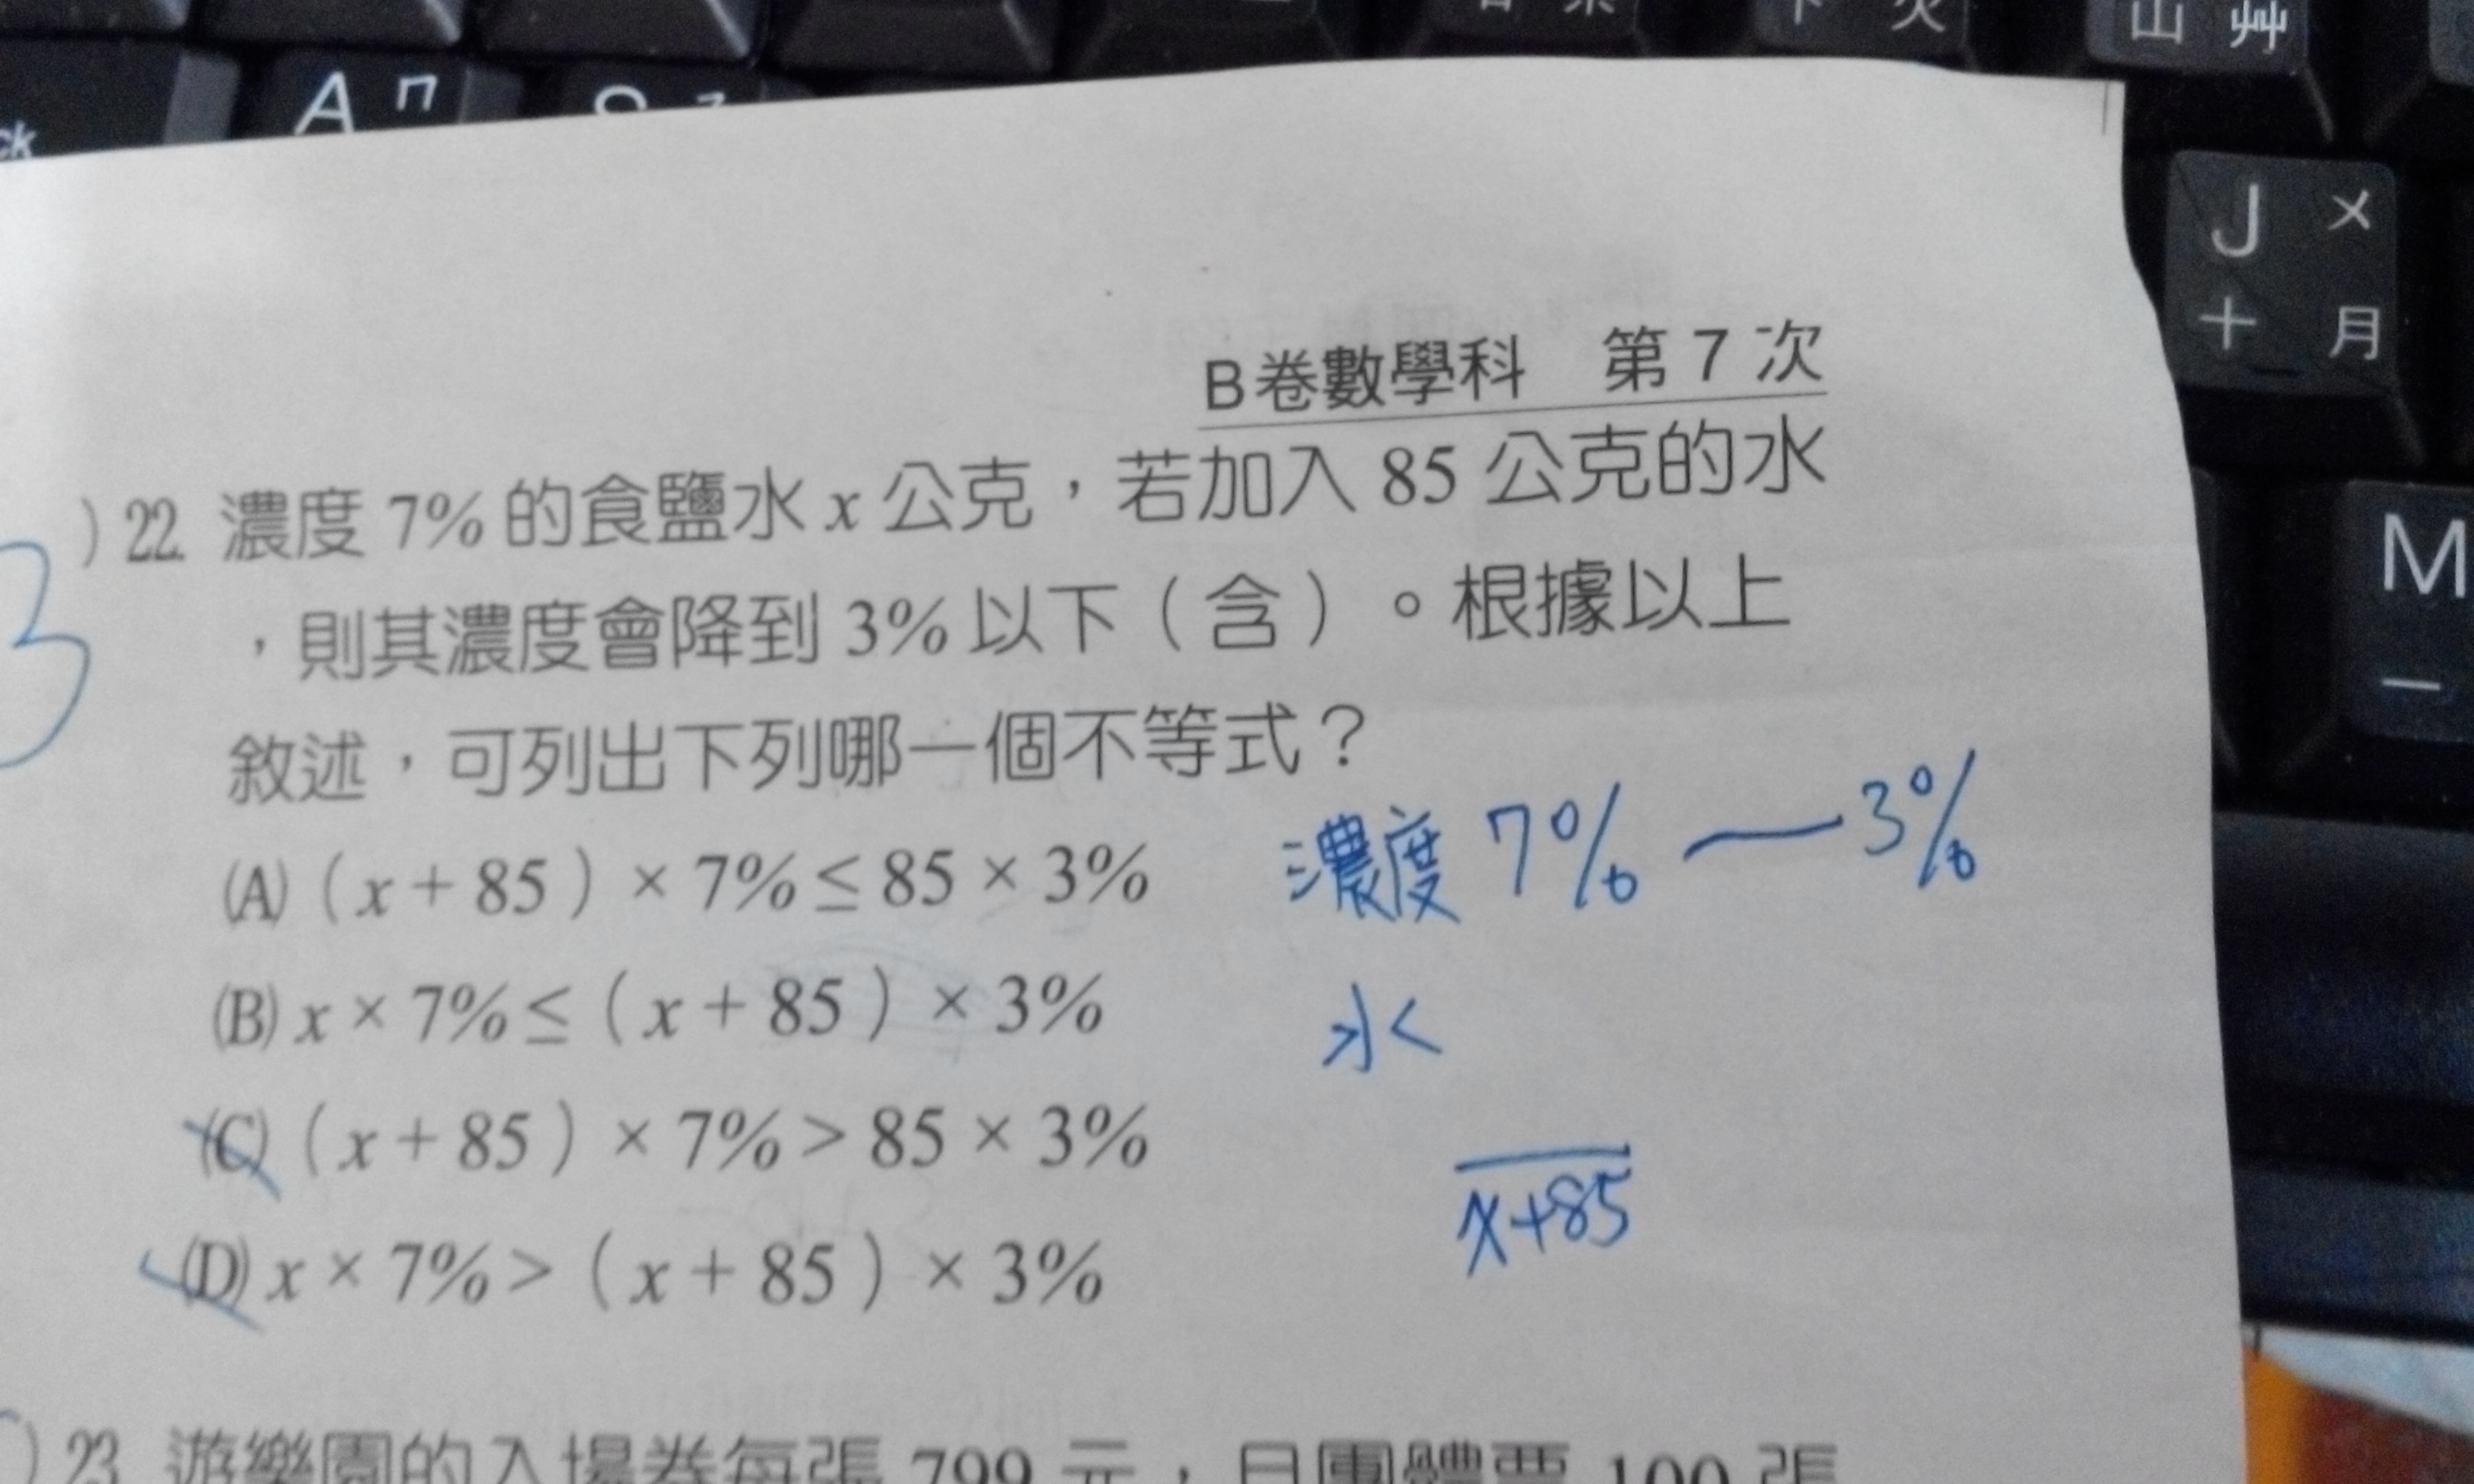 山 艸
A ㄇ
ck
J ㄨ
十 月
M
一
B卷數學科 第7次
)22. 濃度 7% 的食鹽水 x 公克，若加入 85 公克的水
，則其濃度會降到 3% 以下（含）。根據以上
敘述，可列出下列哪一個不等式？
(A)（x + 85）× 7% ≤ 85 × 3%
濃度 7% — 3%
(B) x × 7% ≤（x + 85）× 3%
水<
(C)（x + 85）× 7% > 85 × 3%
x+85
(D) x × 7% >（x + 85）× 3%
)23. 遊樂園的入場券每張 799 元，且團體票 100 張